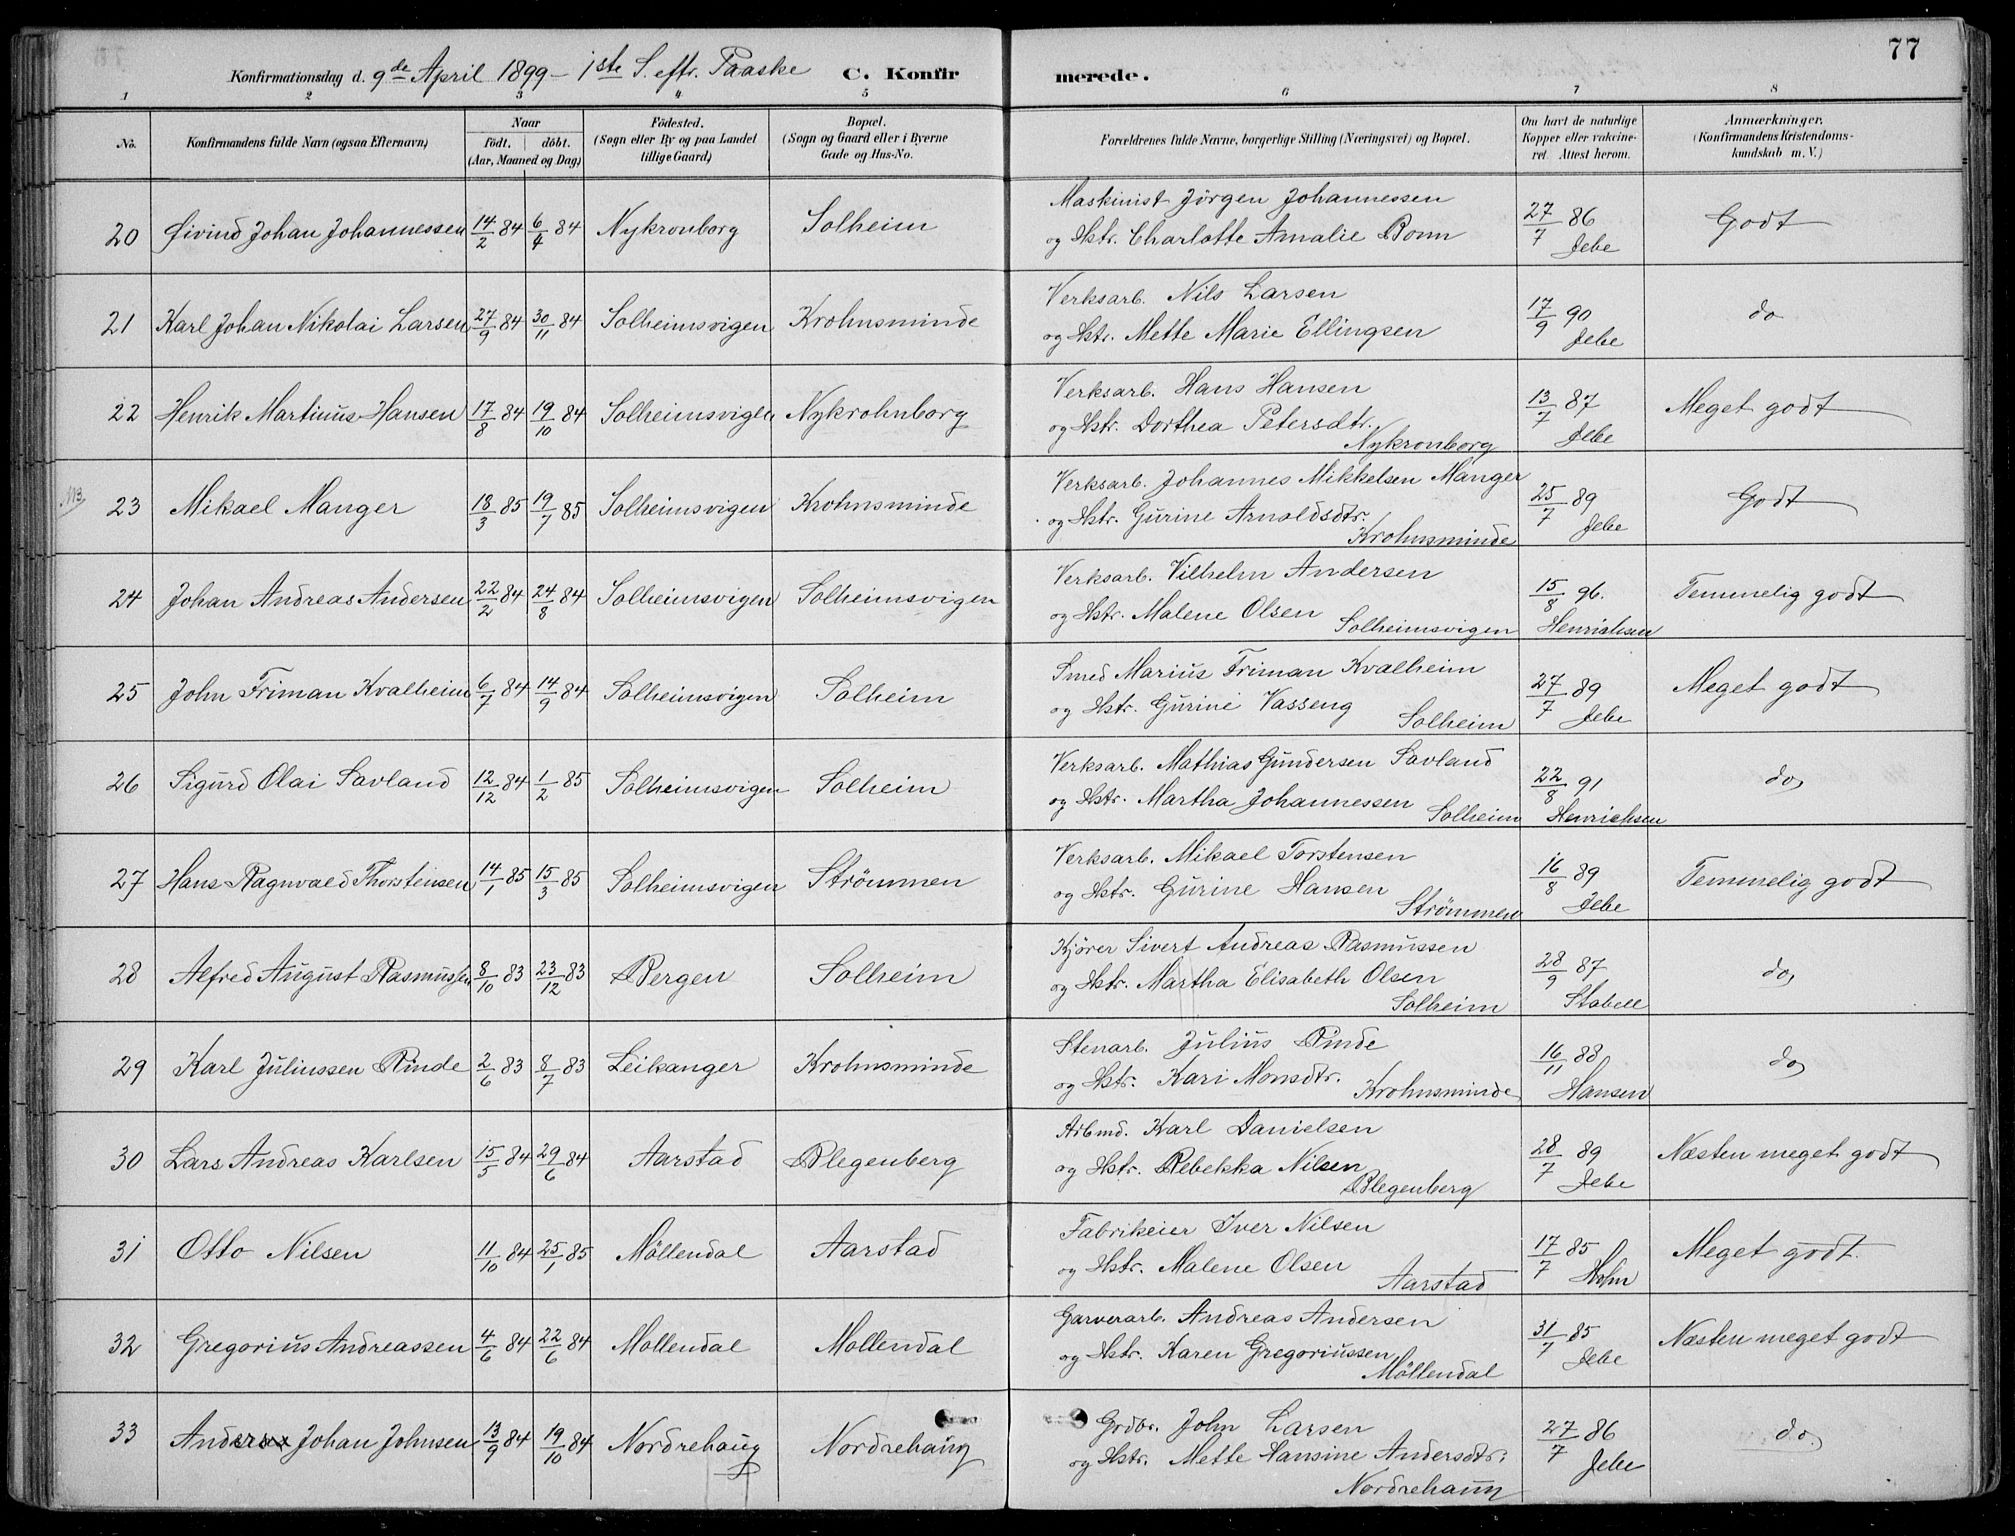 77
Konfirmationsdag d. 9de April 1899 – 1ste S. eftr. Paaske C. Konfirmerede.
1 2 3 4 5 6 7 8
No. Konfirmandens fulde Navn (ogsaa Efternavn) Naar Födt. döbt. (Aar, Maaned og Dag) Födested. (Sogn eller By og paa Landet tillige Gaard) Bopæl. (Sogn og Gaard eller i Byerne Gade og Hus-No. Forældrenes fulde Navne, borgerlige Stilling (Næringsvei) og Bopæl. Om havt de naturlige Kopper eller vakcineret. Attest herom. Anmærkninger. (Konfirmandens Kristendomskundskab m. V.)
20 Øivind Johan Johannessen 14/2 84 6/4 84 Nykronborg Solheim Maskinist Jörgen Johannessen 27/7 86 Godt
og Hstr. Charlotte Amalie Bonn Jebe
21 Karl Johan Nikolai Larsen 27/9 84 30/11 84 Solheimsvigen Krohnsminde Verksarb. Nils Larsen 17/9 90 do
og Hstr. Mette Marie Ellingsen Jebe
22 Henrik Martinus Hansen 17/8 84 19/10 84 Solheimsvigen Nykrohnborg Verksarb. Hans Hansen 13/7 87 Meget godt
og Hstr. Dorthea Petersdtr. Jebe
Nykronborg
23 Mikael Manger 18/3 85 19/7 85 Solheimsvigen Krohnsminde Verksarb. Johannes Mikkelsen Manger 25/7 89 Godt
og Hstr. Gurine Arnoldsdtr. Jebe
Krohnsminde
24 Johan Andreas Andersen 22/2 84 24/8 84 Solheimsvigen Solheimsvigen Verksarb. Vilhelm Andersen 15/8 96. Temmelig godt
og Hstr. Malene Olsen
Solheimsvigen Henrichsen
25 John Friman Kvalheim 6/7 84 14/9 84 Solheimsvigen Solheim Smed Marius Friman Kvalheim 27/7 89 Meget godt
og Hstr. Gurine Vasseng
Solheim Jebe
26 Sigurd Olai Savland 12/12 84 1/2 85 Solheimsvigen Solheim Verksarb. Mathias Gundersen Savland 22/8 91 do
og Hstr. Martha Johannessen
Solheim Henrichsen
27 Hans Ragnvald Thorstensen 14/1 85 15/3 85 Solheimsvigen Strömmen Verksarb. Mikael Torstensen 16/8 89 Temmelig godt
og Hstr. Gurine Hansen
Strømmen Jebe
28 Alfred August Rasmussen 8/10 83 23/12 83 Bergen Solheim Kjörer Sivert Andreas Rasmussen 28/9 87 do
og Hstr. Martha Elisabeth Olsen
Solheim Stabell
29 Karl Juliussen Rinde 2/6 83 8/7 83 Leikanger Krohnsminde Stenarb. Julius Rinde 16/11 88 do
og Hstr. Kari Monsdtr.
Krohnsminde Hansen
30 Lars Andreas Karlsen 15/5 84 29/6 84 Aarstad Blegenberg Arbmd. Karl Danielsen 28/7 89 Næsten meget godt
og Hstr. Rebekka Nilsen
Blegenberg Jebe
31 Otto Nilsen 11/10 84 25/1 85 Möllendal Aarstad Fabrikeier Iver Nilsen 17/7 85 Meget godt.
og Hstr. Malene Olsen
Aarstad Holm
32 Gregorius Andreassen 4/6 84 22/6 84 Mollendal Mollendal Garverarb. Andreas Andersen 31/7 85 Næsten meget godt
og Hstr. Karen Gregoriussen Jebe
Möllendal
33 Anders Johan Johnsen 13/9 84 19/10 84 Nordrehaug Nordrehaug Grdbr. John Larsen 27/7 86 do.
og Hstr. Mette Hansine Andersdtr. Jebe
Nordrehaug